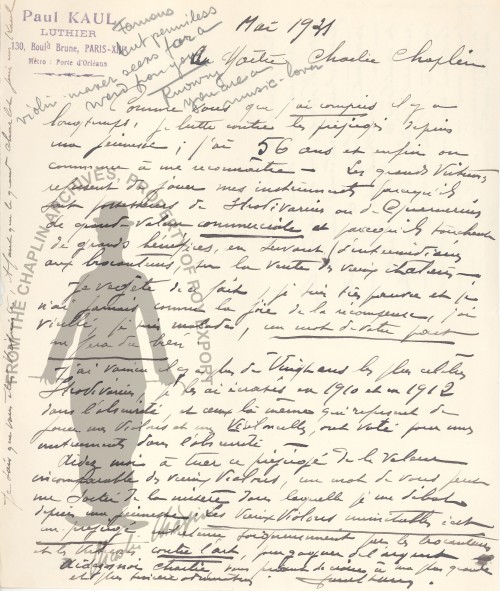 Paul KAUL
LUTHIER
130, Boulᵈ Brune, PARIS-XIVᵉ
Métro : Porte d'Orléans
Famous
but penniless
violin-maker seeks for a
word from you
Knowing
you are a
music-lover
Mai 1931
Au Maître Charlie Chaplin
Comme vous que j'ai compris il y a
longtemps, je lutte contre les préjugés depuis
ma jeunesse ; j'ai 56 ans et enfin on
commence à me reconnaître — Les grands Virtuoses
refusent de jouer mes instruments parcequ'ils
sont possesseurs de Stradivarius ou de Guarnerius
de grande valeur commerciale et parcequ'ils touchent
de grands bénéfices, en servant d'intermédiaires
aux brocanteurs, sur la vente des vieux
je suis très pauvre et je
n'ai jamais connu la joie de la récompense, j'ai
vieilli, je suis malade, un mot de votre part
me fera du bien
J'ai vaincu il y a plus de Vingt ans les plus célèbres
Stradivarius, je les ai écrasés en 1910 et en 1912
dans l'obscurité, et ceux là mêmes qui refusent de
jouer mes Violons et mes Violoncelles, ont voté pour mes
instruments dans l'obscurité —
Aidez moi à tuer ce préjugé de la valeur
incomparable des vieux Violons, un mot de vous peut
me sortir de la misère dans laquelle je me débats
depuis ma jeunesse les vieux Violons
un préjugé soigneusement par les brocanteurs
et les contre l'art, pour gagner de l'argent
Aidez moi Charlie, vous à ma plus grande
et plus sincère admiration.
FROM THE CHAPLIN ARCHIVES, PROPERTY OF ROY EXPORT
Charlie Chaplin